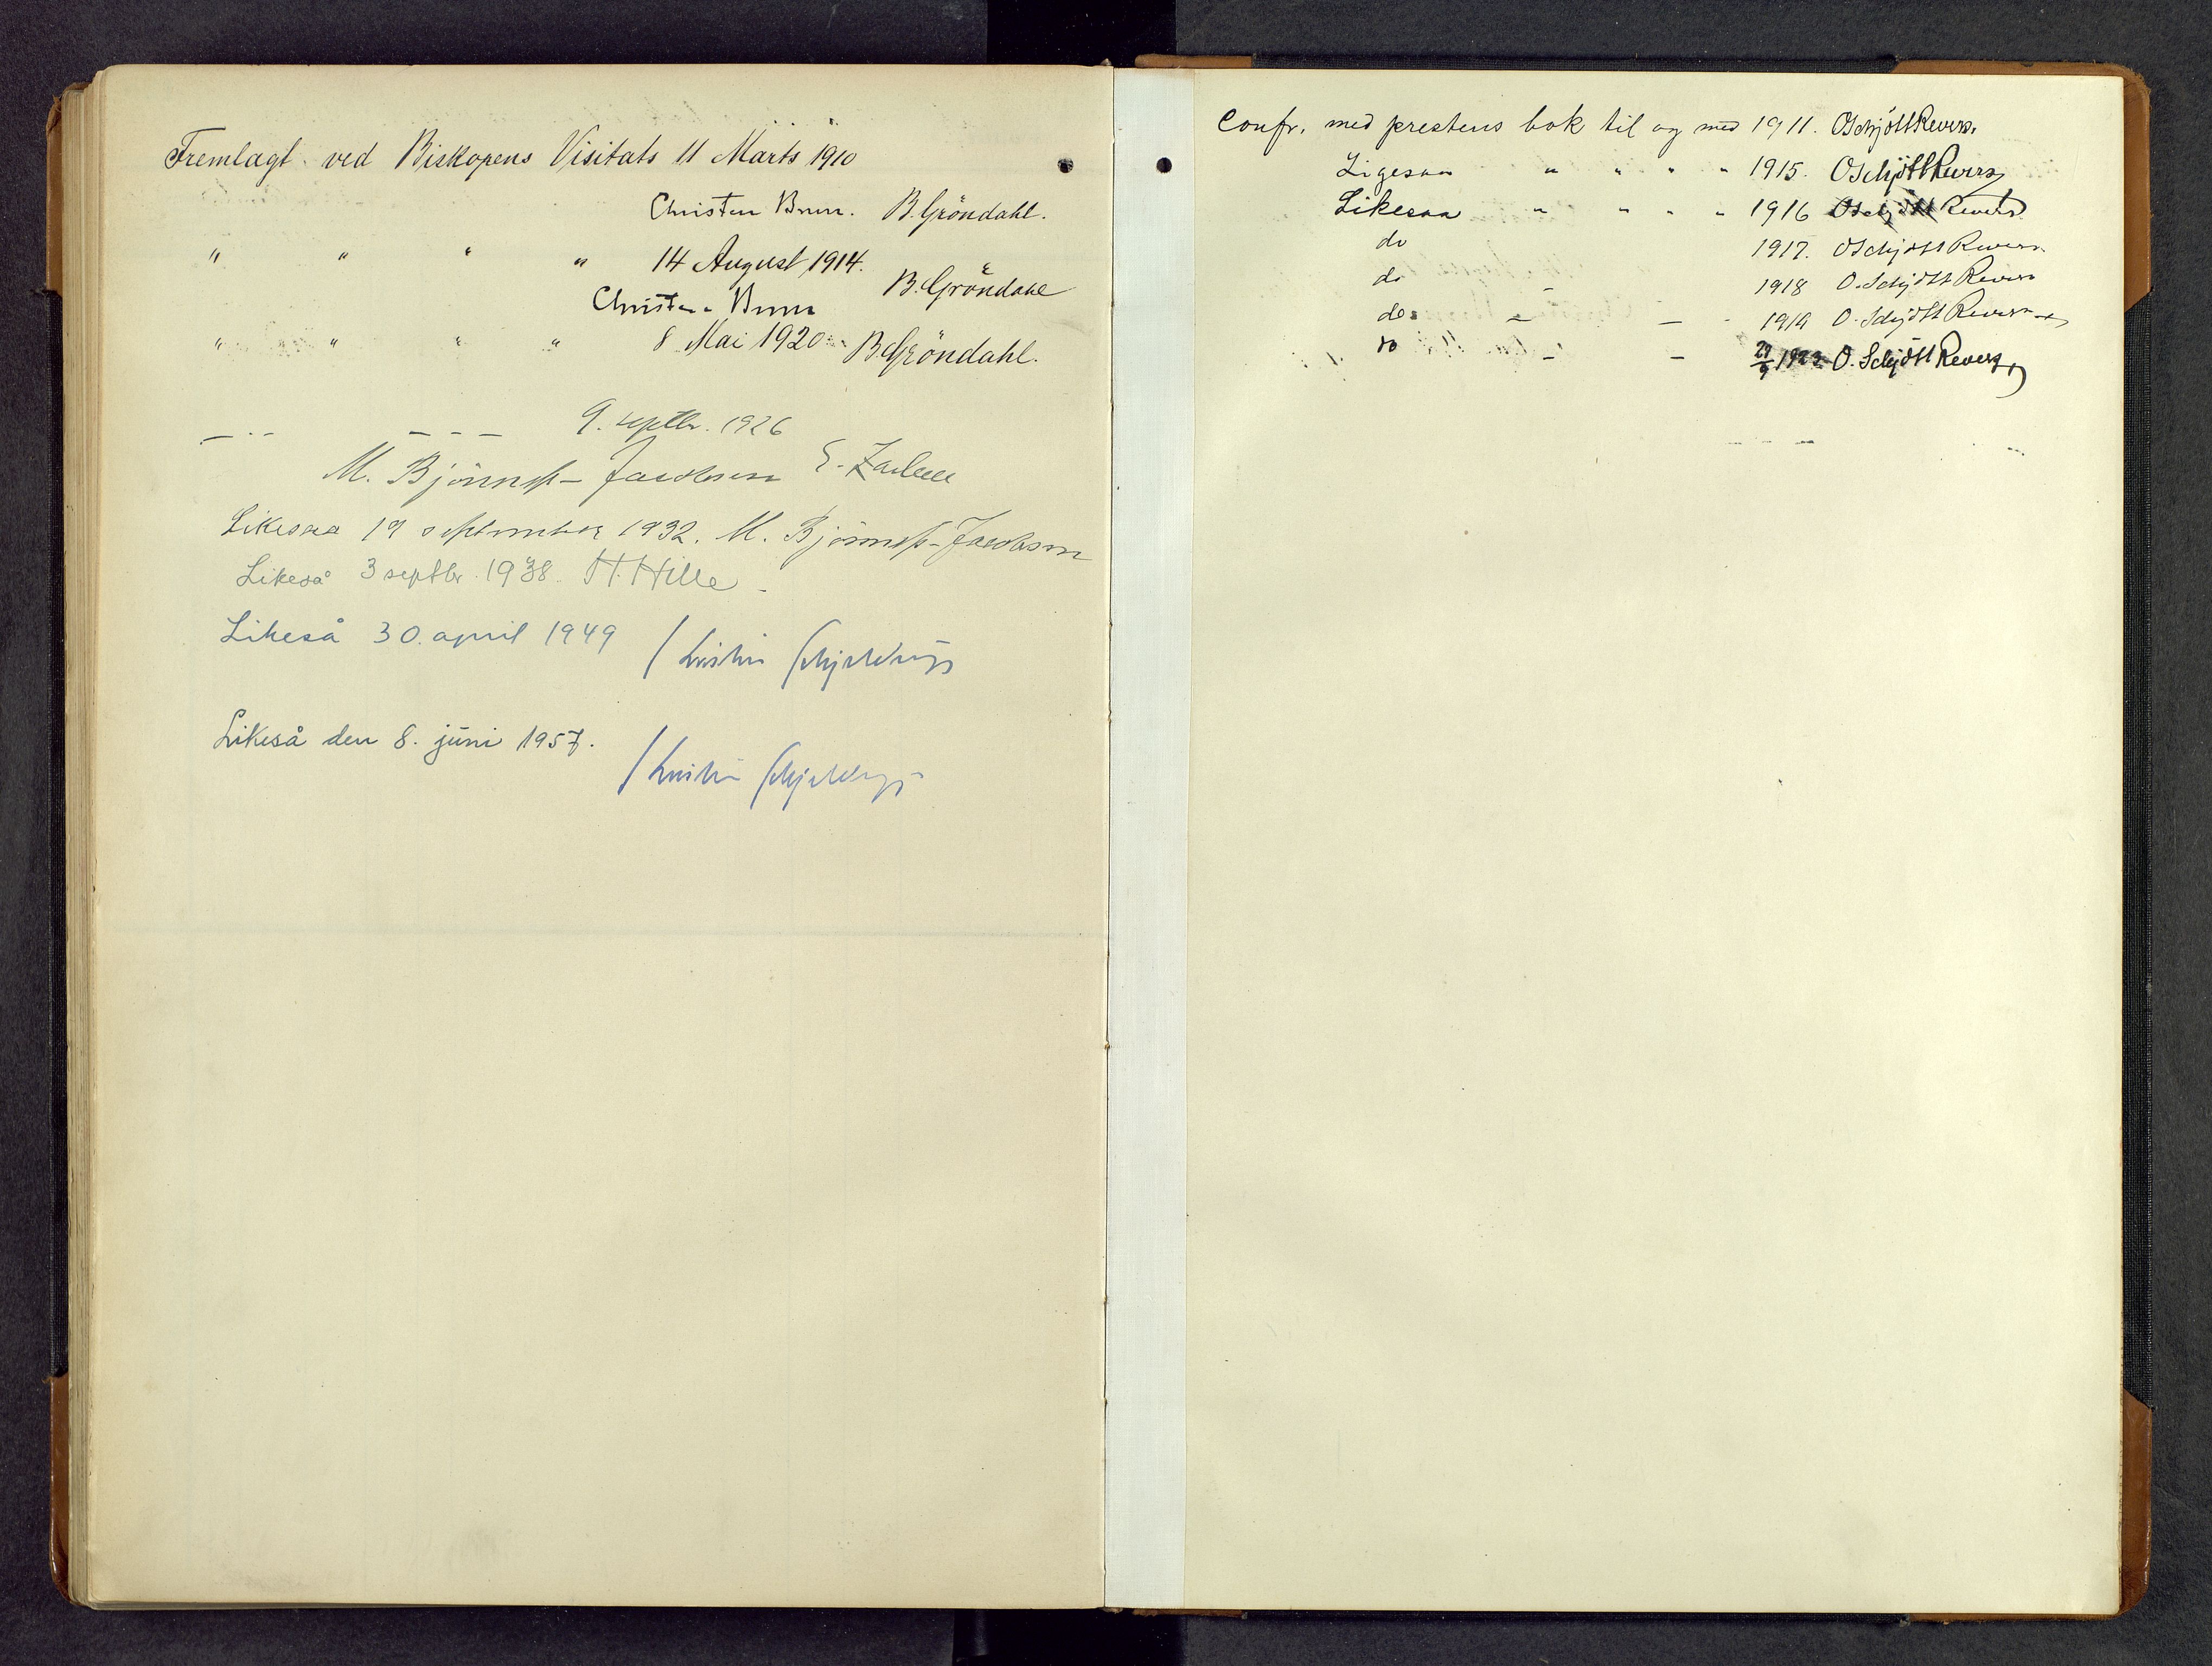 Fremlagt ved Biskopens Visitats 11 Marts 1910
Christen Brun. B. Gröndahl.
" " " " 14 August 1914.
Christen Brun B. Gröndahl
" " " " 8 Mai 1920. B. Gröndahl.
— - - — — — 9. septbr. 1926
M. Bjönness-Jacobsen E.
Likesaa 19 september 1932. M. Bjönness-Jacobsen
Likeså 3 septbr. 1938. H. Hille
Likeså 30. april 1949
Kristian Schjelderup
Likeså den 8. juni 1957.
Kristian Schjelderup
Confr. med prestens bok til og med 1911. O Schjött Revers.
Ligesaa " " " " 1915. O Schjött Revers
Likesaa " " " " 1916 O Schjött Revers
do 1917. O Schjött Revers.
do - 1918 O. Schjött Revers
do - — - 1919 O. Schjött Revers
do - - 29/9 1922 O. Schjött Revers